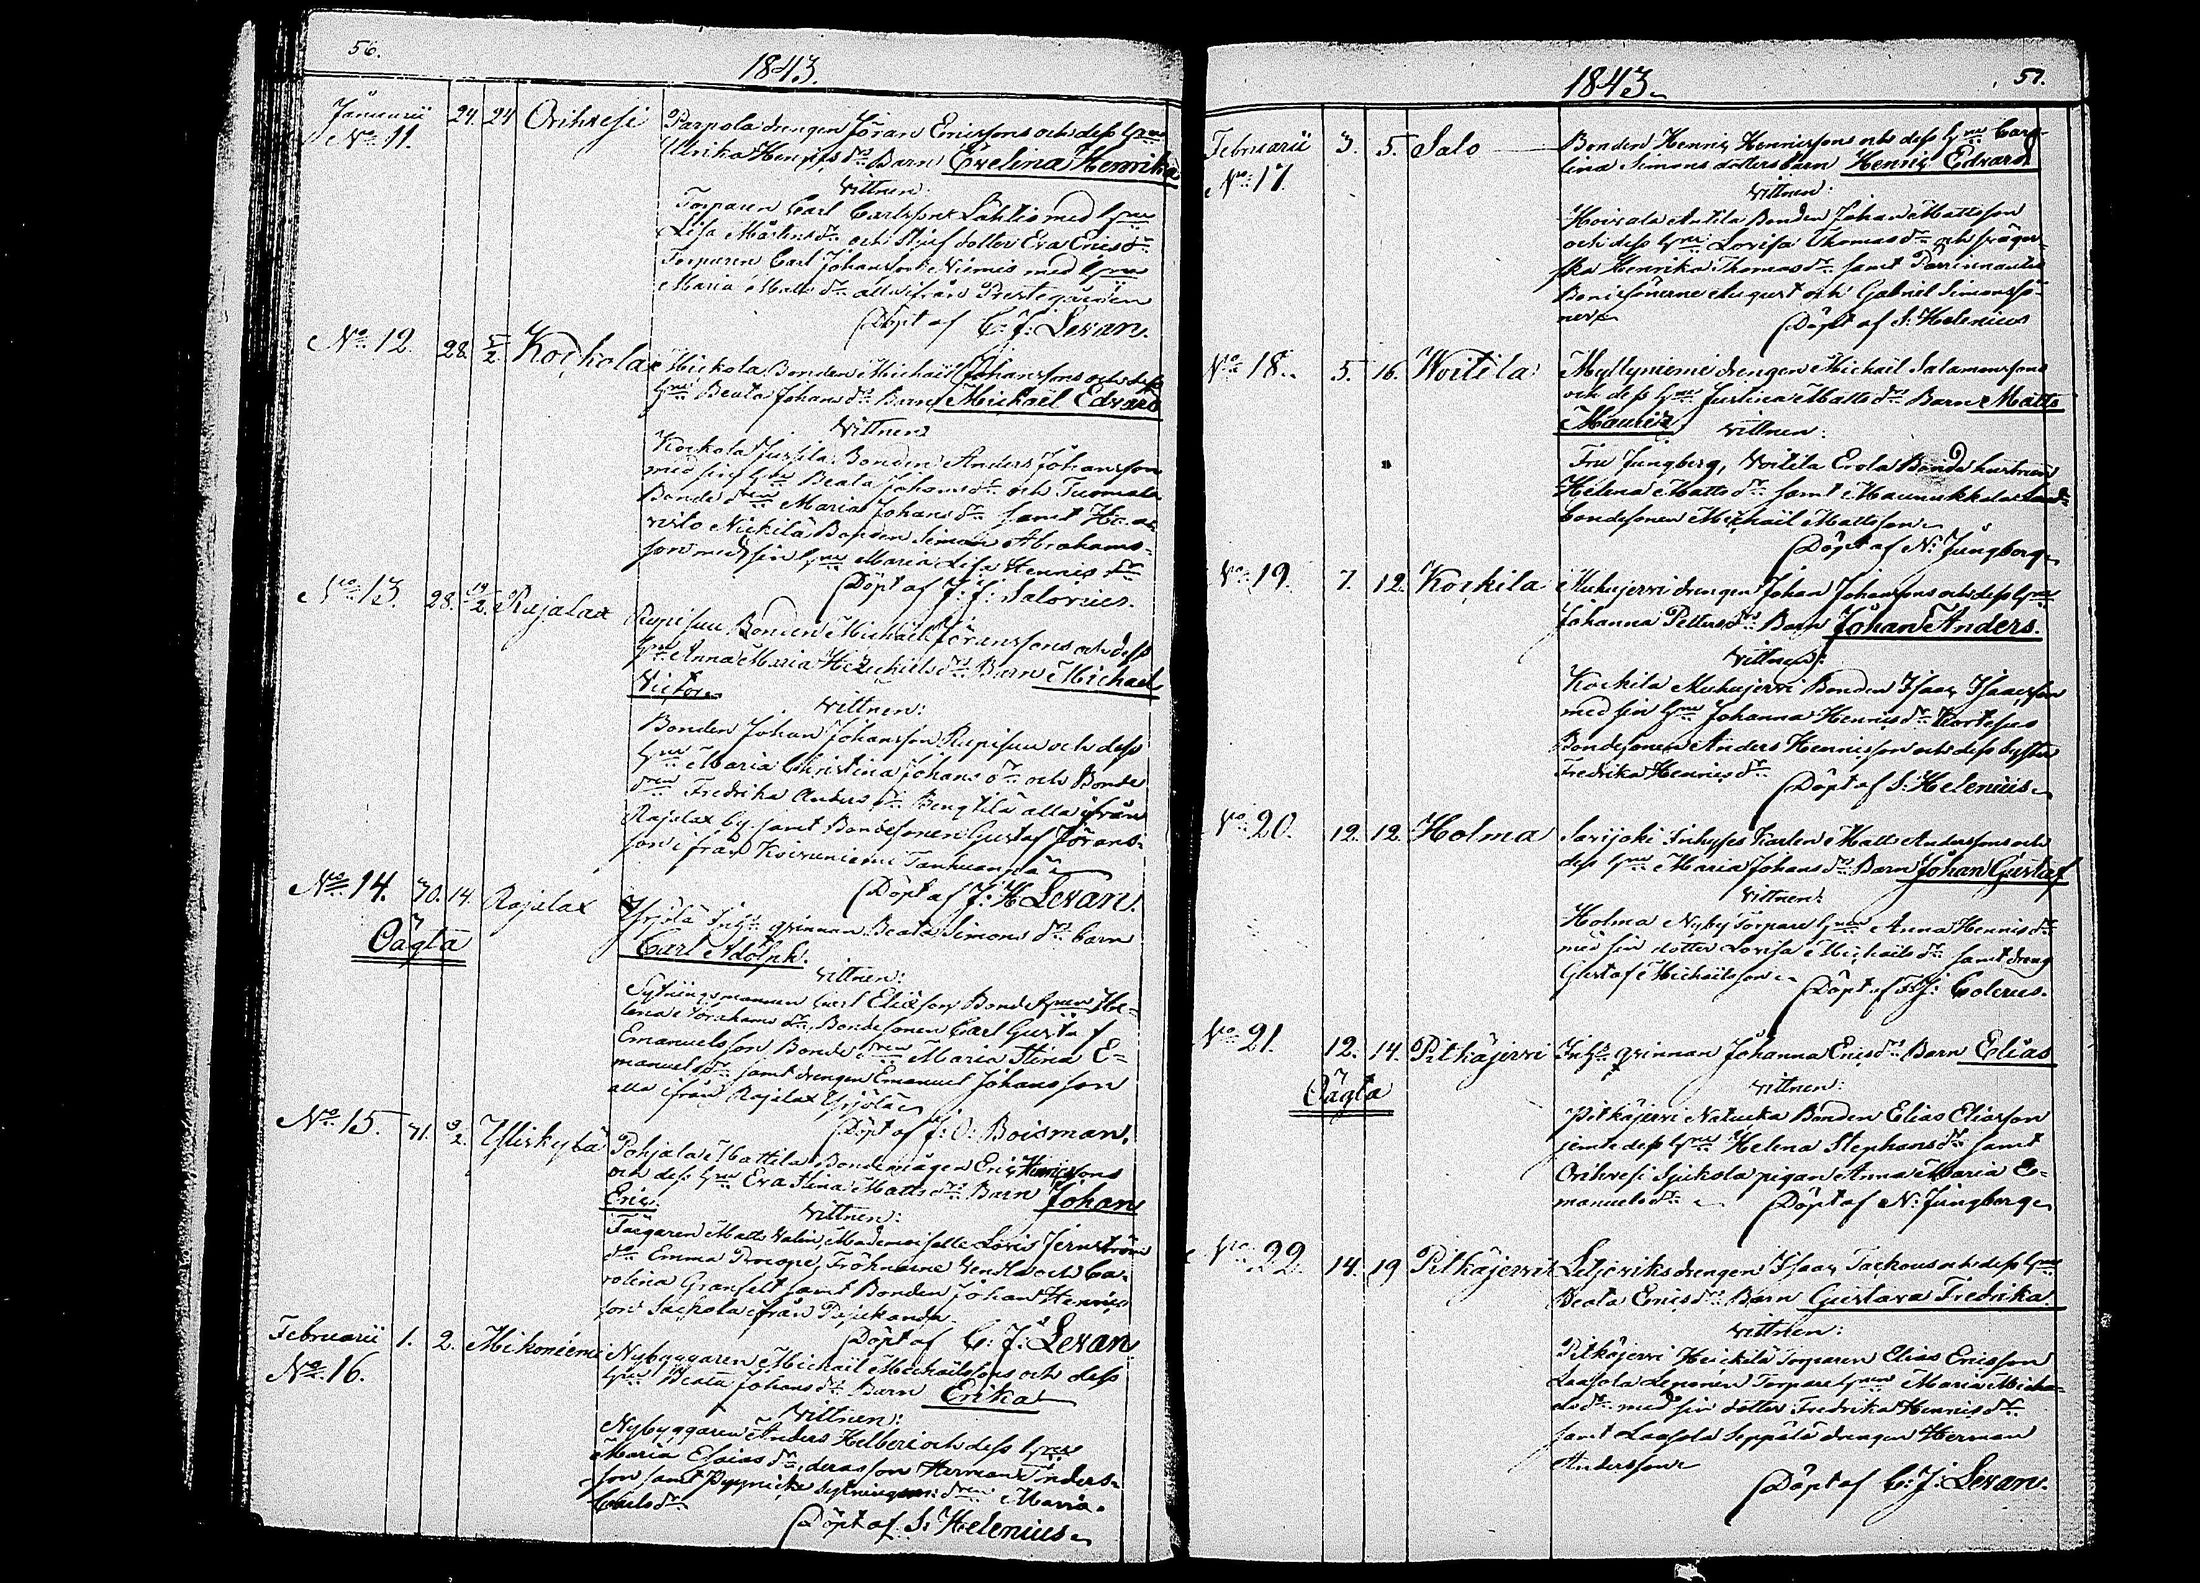 56.
1843.
Januarii
No 11.
24. 24 Orihvesi
Parpola drengen Jöran Ericssons och dess Hru
Ulrika Henrics dr Barn Evelina Henrika
Vittnen:
Torparen Carl Carlsson Lähtis med Hru
Lisa Mårtens dr och Styfdotter Eva Erics dr
Torparen Carl Johansson Niemis med Hru
Maria Matts dr alla ifrån Prestegården
Döpt af C: J: Levan.
No 12. 28. 5/2. Kockola
Mickola Bonden Michaël Johanssons och dess
Hru Beata Johans dr Barn Michaël Edvard
Vittnen:
Kockola Jussila Bonden Anders Johansson
med sin Hru Beata Johans dr och Tuomala
Bonde dren Maria Johans dr samt
Nickilä Bonden Simon Abrahams-
son med sin Hru Maria Lisa Henrics dr
Döpt af J: J: Salovius.
No 13. 28. 12/2. Rajalax
Rupisuu Bonden Michaël Jöranssons och dess
Hru Anna Maria Hezechiels dr Barn Michaël
Victor
Vittnen:
Bonden Johan Johansson Rupisuu och dess
Hru Maria Christina Johans dr och Bonde
dren Fredrika Anders dr Bengtilä alla ifrån
Rajalax by samt Bondesonen Gustaf Jörans-
son ifrån Koivuniemi
Döpt af J: H Levan.
No 14. 30. 14. Rajalax
Oägta
Yrjölä Inhs qvinnan Beata Simons dr barn
Carl Adolph.
Vittnen:
Sytningsmannen Carl Eliasson, Bonde Hrun He-
lena Abrahams dr, Bondesonen Carl Gustaf
Emanuelsson Bonde dren Maria Stina E=
manuels dr samt drengen Emanuel Johansson
alla ifrån Rajalax Yrjölä
Döpt af J: O: Boisman.
No 15. 31. 9/2. Yliskylä
Pohjala Mattila Bondemågen Eric Henricssons
och dess Hru Eva Stina Matts dr Barn Johan
Eric.
Vittnen:
Färgaren Matts Valin, Mademoiselle Lovis Jernström
do Emma Procopé, Fröknarne Vendla och Ca-
rolina Granfelt samt Bonden Johan Henrics
son Sackola ifrån
Döpt af C: J: Levan
Februarii
No 16. 1. 2. Mikoniemi
Nybyggaren Michaël Michaëlssons och dess
Hru Beata Johans dr Barn Erika
Vittnen:
Nybyggaren Anders Helberi och dess Hru
Maria Esaias dr, deras son Herman Anders-
son samt sytningsm: dren Maria
Carls dr
Döpt af S: Helenius
1843
57.
Februarii
No 17. 3. 5. Salo
Bonden Henric Henricssons och dess Hru Caro-
lina Simons dotters barn Henric Edvard
Vittnen:
Hoivala Antila Bonden Johan Mattsson
och dess Hru Lovisa Thomas dr och svåger-
ska Henrika Thomas dr samt
Bondesönerne August och Gabriel Simonssö-
ner
Döpt af S: Helenius
No 18. 5. 16. Woitila
Myllyniemi drengen Michaël Salamonssons
och dess Hru Justina Matts dr Barn Matts
Mauritz
Vittnen:
Fru Jungberg, Voitila Erola Bonde hustrun
Helena Matts dr samt Maunukkala
bondesonen Michaël Mattsson
Döpt af N: Jungberg
No 19. 7. 12. Kockila
Muhujervi drengen Johan Johanssons och dess Hru
Johanna Petters dr Barn Johan Anders.
Vittnen:
Kockila Muhujervi Bonden Isaac Isaacsson
med sin Hru Johanna Henrics dr
Bondesonen Anders Henricsson och dess Syster
Fredrika Henrics dr
Döpt af S: Helenius
No 20. 12. 12. Holma
Savijoki Inhyses Karlen Matts Anderssons och
dess Hru Maria Johans dr Barn Johan Gustaf
Vittnen:
Holma Nyby Torpare Hrun Anna Henrics dr
med sin dotter Lovisa Michaëls dr samt dreng
Gustaf Michaëlsson
Döpt af Colerus.
No 21. 12. 14. Pitkäjervi
Oägta
Inhs qvinnan Johanna Erics dr Barn Elias
Vittnen:
Pitkäjervi Natucka Bonden Elias Eliasson
jemte dess Hru Helena Stephans dr samt
Orihvesi Sjukola pigan Anna Maria E=
manuels dr
Döpt af N: Jungberg
No 22. 14. 19 Pitkäjervi
drengen Isaac Tackous och dess Hru
Beata Erics dr Barn Gustava Fredrika
Vittnen:
Pitkäjervi Heickilä Torparen Elias Ericsson
Laasola Torpare Hrun Maria Micha-
els dr med sin dotter Fredrika Henrics dr
samt Laasola Seppälä drengen Herman
Andersson
Döpt af C: J: Levan.